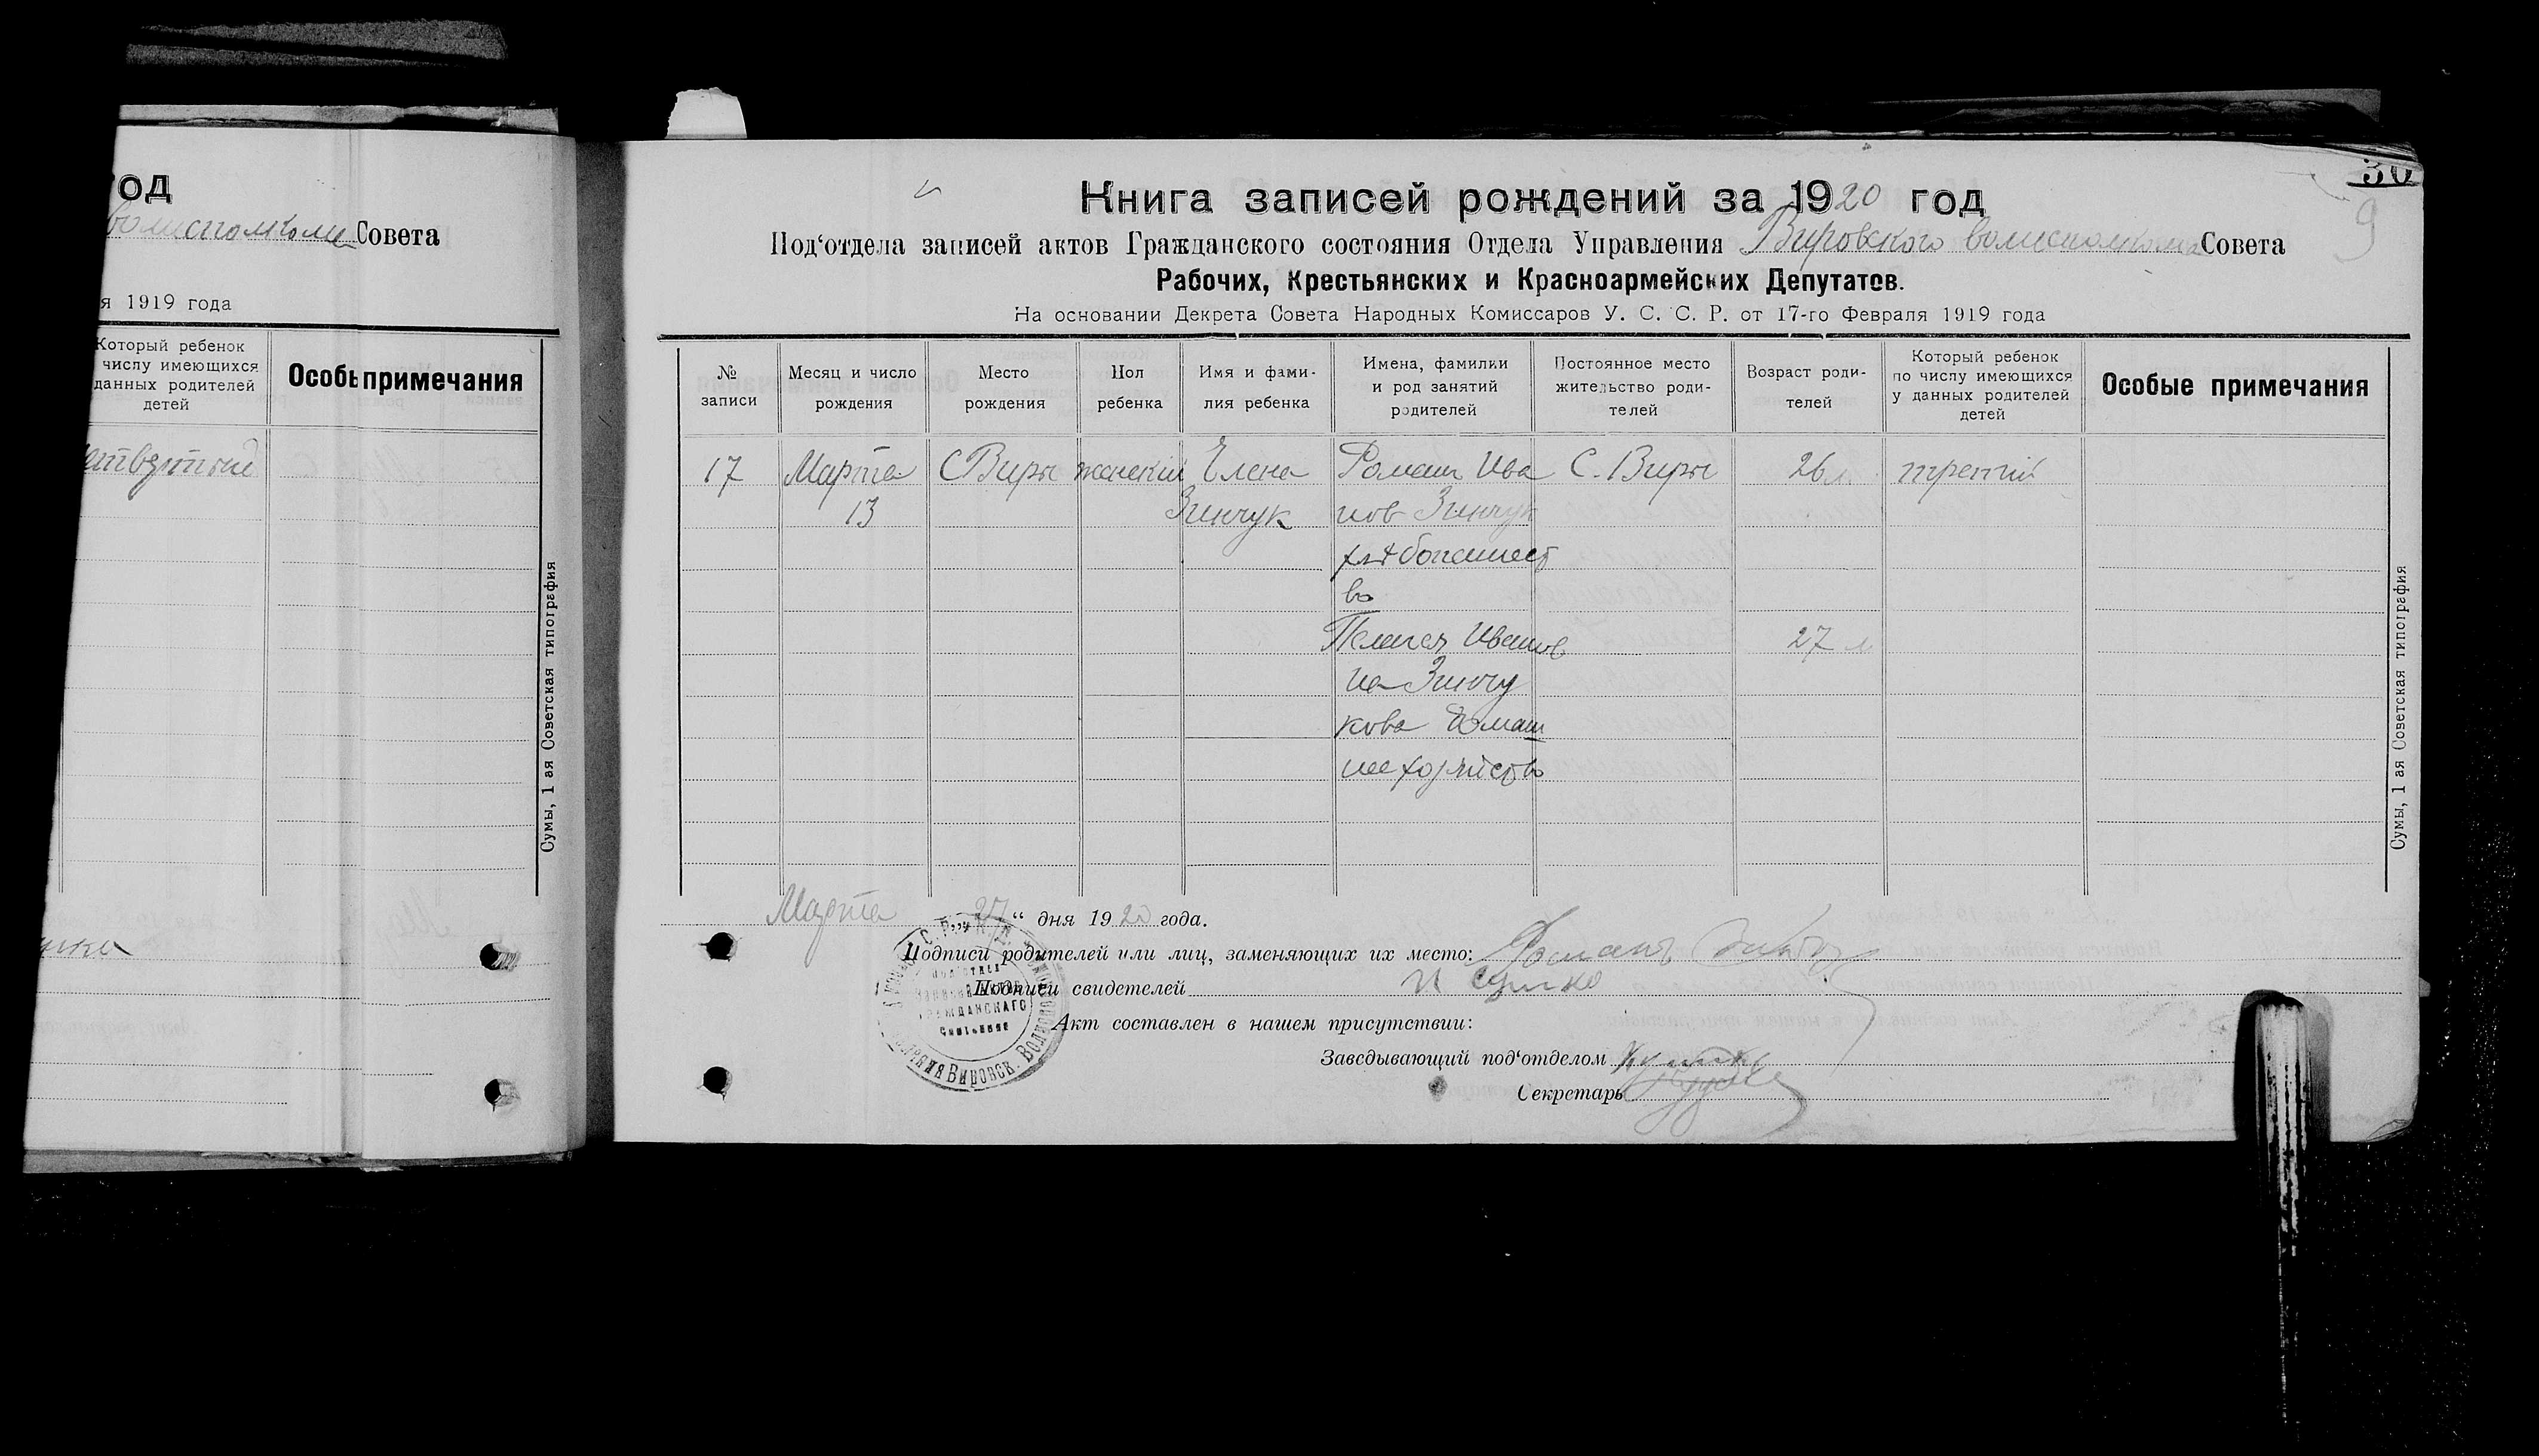 од
волисполкома Совета
я 1919 года
Который ребенок
числу имеющихся
данных родителей
детей
Особ примечания
етвертый
Сумы, 1 ая Советская типография
30
9
Книга записей рождений за 1920 год
Под‘отдела записей актов Гражданского состояния Отдела Управления Вировского волисполкома Совета
Рабочих, Крестьянских и Красноармейских Депутатов.
На основании Декрета Совета Народных Комиссаров У. С. С. Р. от 17-го Февраля 1919 года
№
записи
Месяц и число
рождения
Место
рождения
Пол
ребенка
Имя и фами-
лия ребенка
Имена, фамилии
и род занятий
родителей
Постоянное место
жительство роди-
телей
Возраст роди-
телей
Который ребенок
по числу имеющихся
у данных родителей
детей
Особые примечания
17
Марта
13
С Виры
женский
Елена
Зинчук
Роман Ива
нов Зинчук
хлѣбопашест
во
Пелагея Иванов
на Зинчу
кова Домаш
нее хозяйство
С. Виры
26 л
27 л
третий
Сумы, 1 ая Советская типография
Марта 27 “ дня 1920 года.
Подписи родителей или лиц, заменяющих их место: Романъ
Подписи свидетелей
Акт составлен в нашем присутствии:
Заведывающий под‘отделом
Секретарь
Гражданского
Вировск. Волиспол